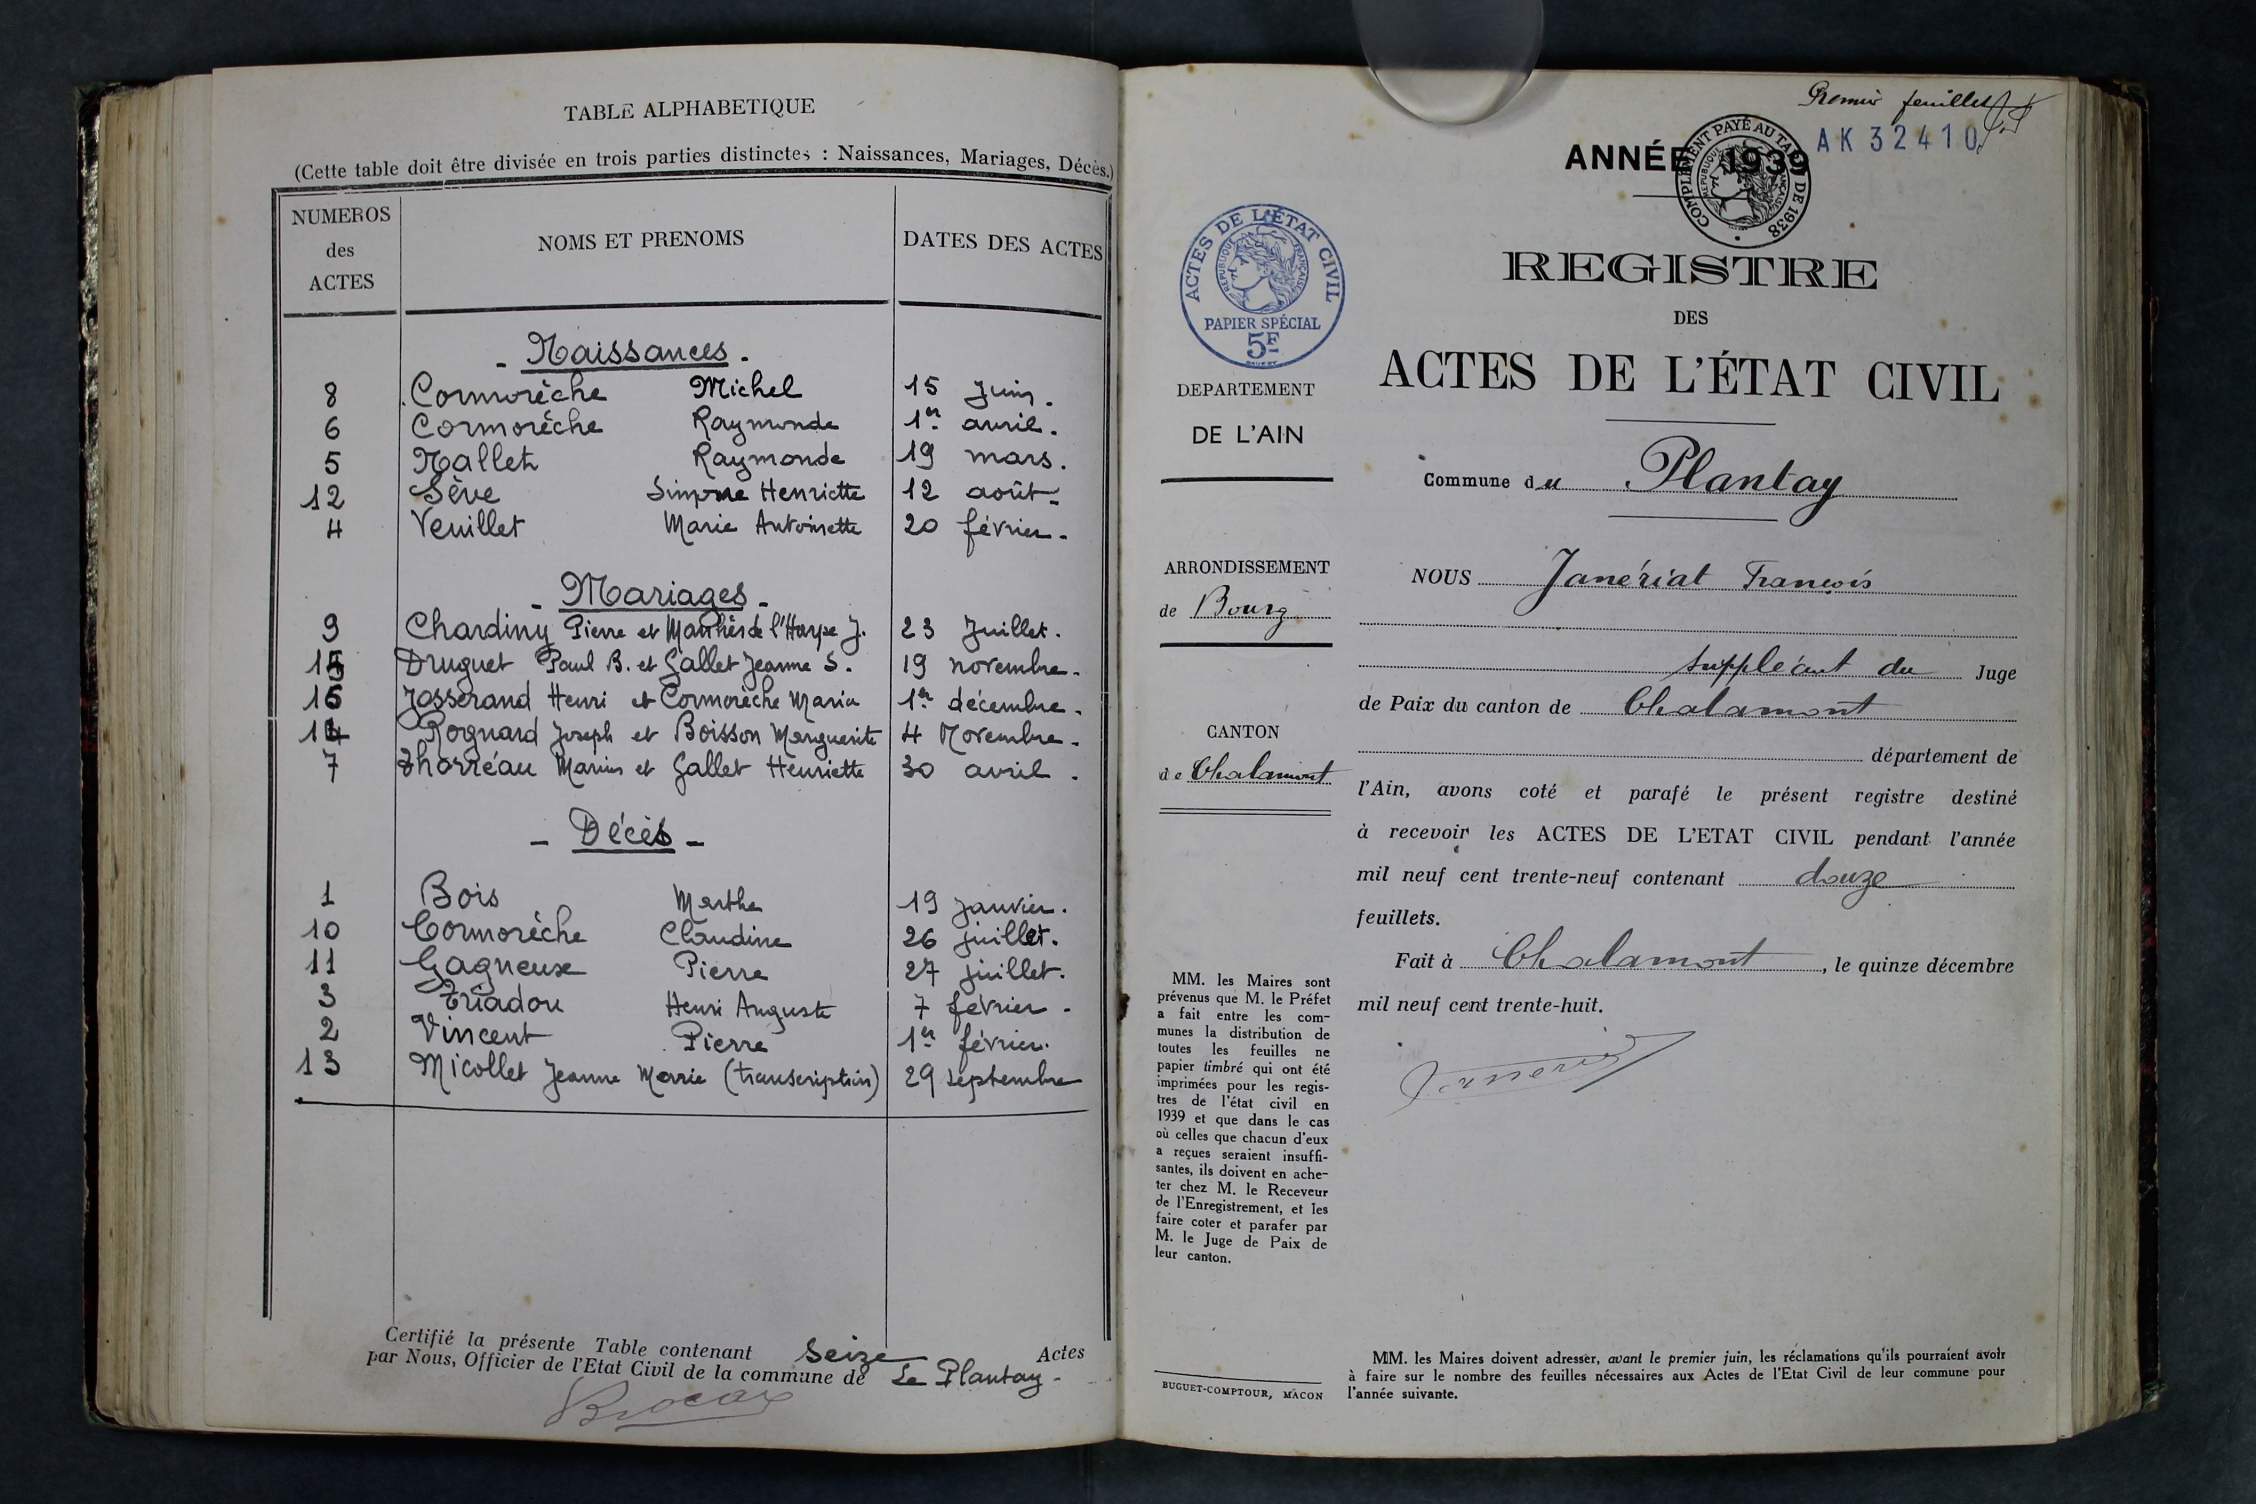 TABLE ALPHABETIQUE
(Cette table doit être divisée en trois parties distinctes : Naissances, Mariages, Décès.)
NUMEROS des ACTES NOMS ET PRENOMS DATES DES ACTES
- Naissances -
8 Cormorèche Michel 15 Juin.
6 Cormorèche Raymonde 1er avril.
5 Nallet Raymonde 19 mars.
12 Sève Simone Henriette 12 août-
4 Veuillet Marie Antoinette 20 février-
- Mariages -
9 Chardiny Pierre et de l'Harpe J. 23 Juillet.
15 Druguet Paul B. et Gallet Jeanne S. 19 novembre-
16 Josserand Henri et Cormorèche Maria 1er décembre-
14 Rognard Joseph et Boisson Marguerite 4 Novembre-
7 Thorréau Marius et Gallet Henriette 30 avril.
- Décès -
1 Bois Marthe 19 Janvier.
10 Cormorèche Claudine 26 juillet.
11 Gagneux Pierre 27 juillet.
3 Triadou Henri Auguste 7 février-
2 Vincent Pierre 1er février.
13 Micollet Jeanne Marie (transcription) 29 septembre
Certifié la présente Table contenant Seize Actes
par Nous, Officier de l'Etat Civil de la commune de Le Plantay-
Brocard
Premier feuillet
AK 32410
ANNÉE 1939
COMPLÉMENT PAYÉ AU TARIF DE 1938
REPUBLIQUE FRANÇAISE
ACTES DE L'ÉTAT CIVIL
REPUBLIQUE FRANÇAISE
PAPIER SPÉCIAL
5F
DEPARTEMENT
DE L'AIN
ARRONDISSEMENT
de Bourg
CANTON
de Chalamont
MM. les Maires sont
prévenus que M. le Préfet
a fait entre les com-
munes la distribution de
toutes les feuilles ne
papier timbré qui ont été
imprimées pour les regis-
tres de l'état civil en
1939 et que dans le cas
où celles que chacun d'eux
a reçues seraient insuffi-
santes, ils doivent en ache-
ter chez M. le Receveur
de l'Enregistrement, et les
faire coter et parafer par
M. le Juge de Paix de
leur canton.
BUGUET-COMPTOUR, MACON
REGISTRE
DES
ACTES DE L'ÉTAT CIVIL
Commune du Plantay
NOUS Janériat François
suppléant du Juge
de Paix du canton de Chalamont
département de
l'Ain, avons coté et parafé le présent registre destiné
à recevoir les ACTES DE L'ETAT CIVIL pendant l'année
mil neuf cent trente-neuf contenant douze
feuillets.
Fait à Chalamont, le quinze décembre
mil neuf cent trente-huit.
MM. les Maires doivent adresser, avant le premier juin, les réclamations qu'ils pourraient avoir
à faire sur le nombre des feuilles nécessaires aux Actes de l'Etat Civil de leur commune pour
l'année suivante.